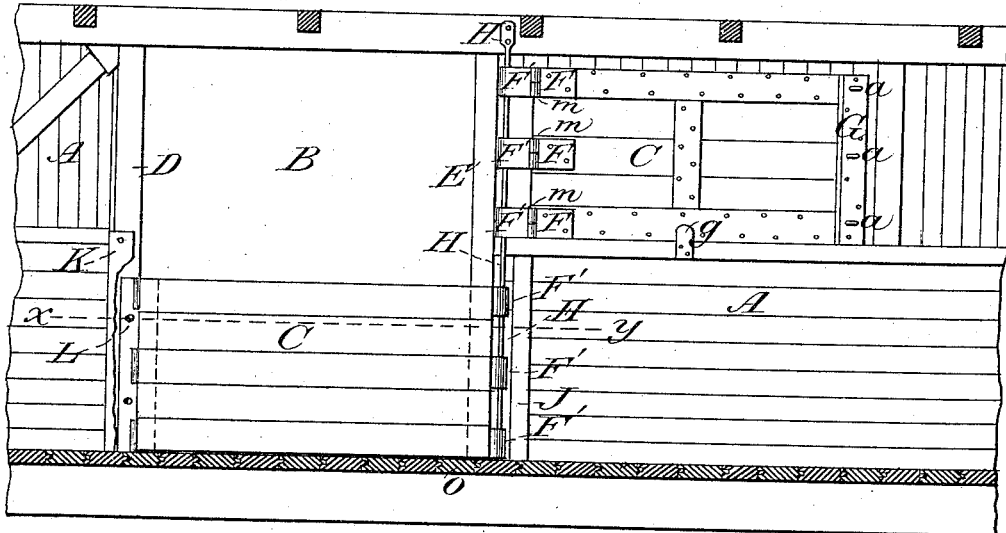 H
F' F a
m
m G
A D B E' F' F C a
m
F' F g a
K H
F' A
x C H y
L F'
J
F'
o